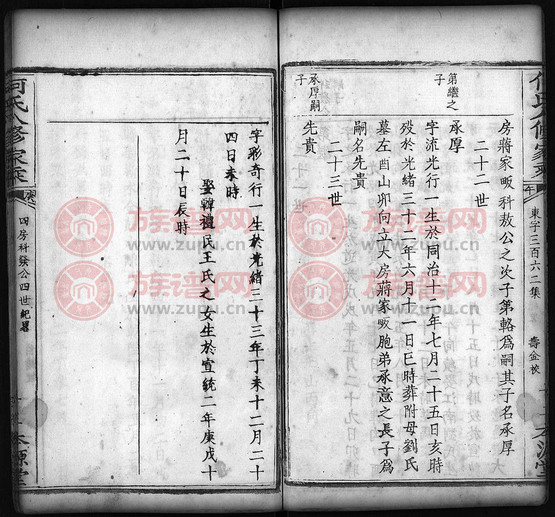 何氏八修家乘
東字三百六二集
壽金校
本源堂
房蔣家畈科敖公之次子第輅爲嗣其子名承厚
二十二世
第繼之子
承厚
字流光行一生於同治十一年七月二十五日亥時
歿於光緒三十二年六月十一日巳時葬附母劉氏
墓左酉山卯向立大房蔣家畈胞弟承意之長子爲
嗣名先貴
二十三世
承厚嗣子
先貴
字彩奇行一生於光緒三十三年丁未十二月二十
四日未時
娶韓祖氏王氏之女生於宣統二年庚戌十
月二十日辰時
何氏八修家乘
四房科發公四世紀畧
本源堂
族谱网
www.zupu.cn